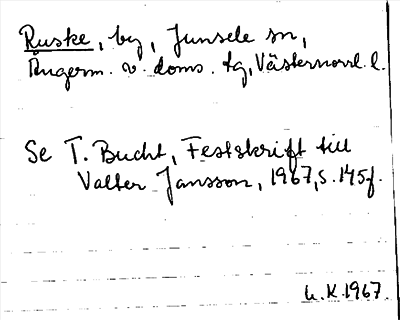 Ruske, by, Junsele sn,
Ångerm. v. doms. tg, Västernorrl. l.
Se T. Bucht, Festskrift till
Valter Jansson, 1967, s. 145f.
U.K. 1967.